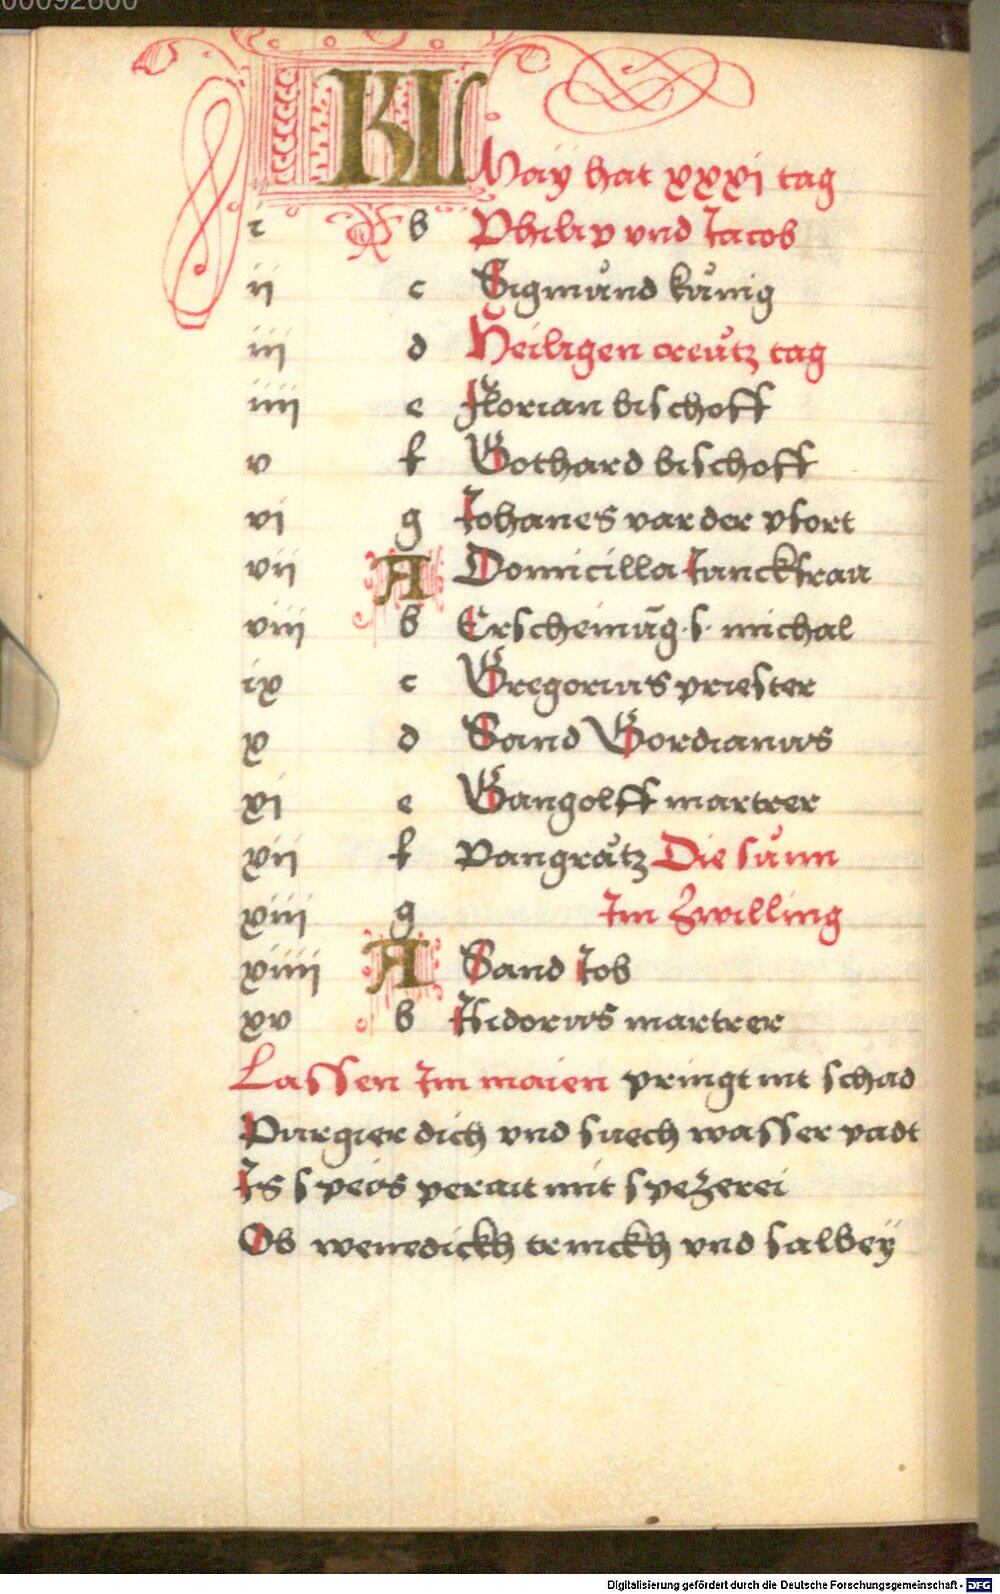 00092600
KL May hat xxxi tag
i b Philip vnd Jacob
ii c Sigmůnd kůnig
iii d Heiligen creůtz tag
iiii e Florian bischoff
v f Gothard bischoff
vi g Johanes var der pfort
vii A Domicilla Junckfrau
viii b Erscheinūg · s · michal
ix c Gregorius priester
x d Sand Gordianus
xi e Gangolff martrer
xii f Pangrätz Die sůnn
xiii g Im Zwilling
xiiii A Sand Job
xv b Isidorus martrer
Lassen Im maien pringt nit schad
Purgier dich vnd suech wasser padt
Is speis perait mit spezerei
Ob wenedickh trinckh vnd salbeÿ
Digitalisierung gefördert durch die Deutsche Forschungsgemeinschaft - DFG